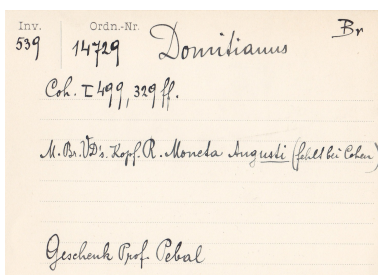 Inv. Ordn.-Nr. Br
539 14729 Domitianus
Coh. I 499, 329 ff.
M. Br. D's. Kopf. R. Moneta Augusti (fehlt bei Cohen)
Geschenk Prof. Pebal